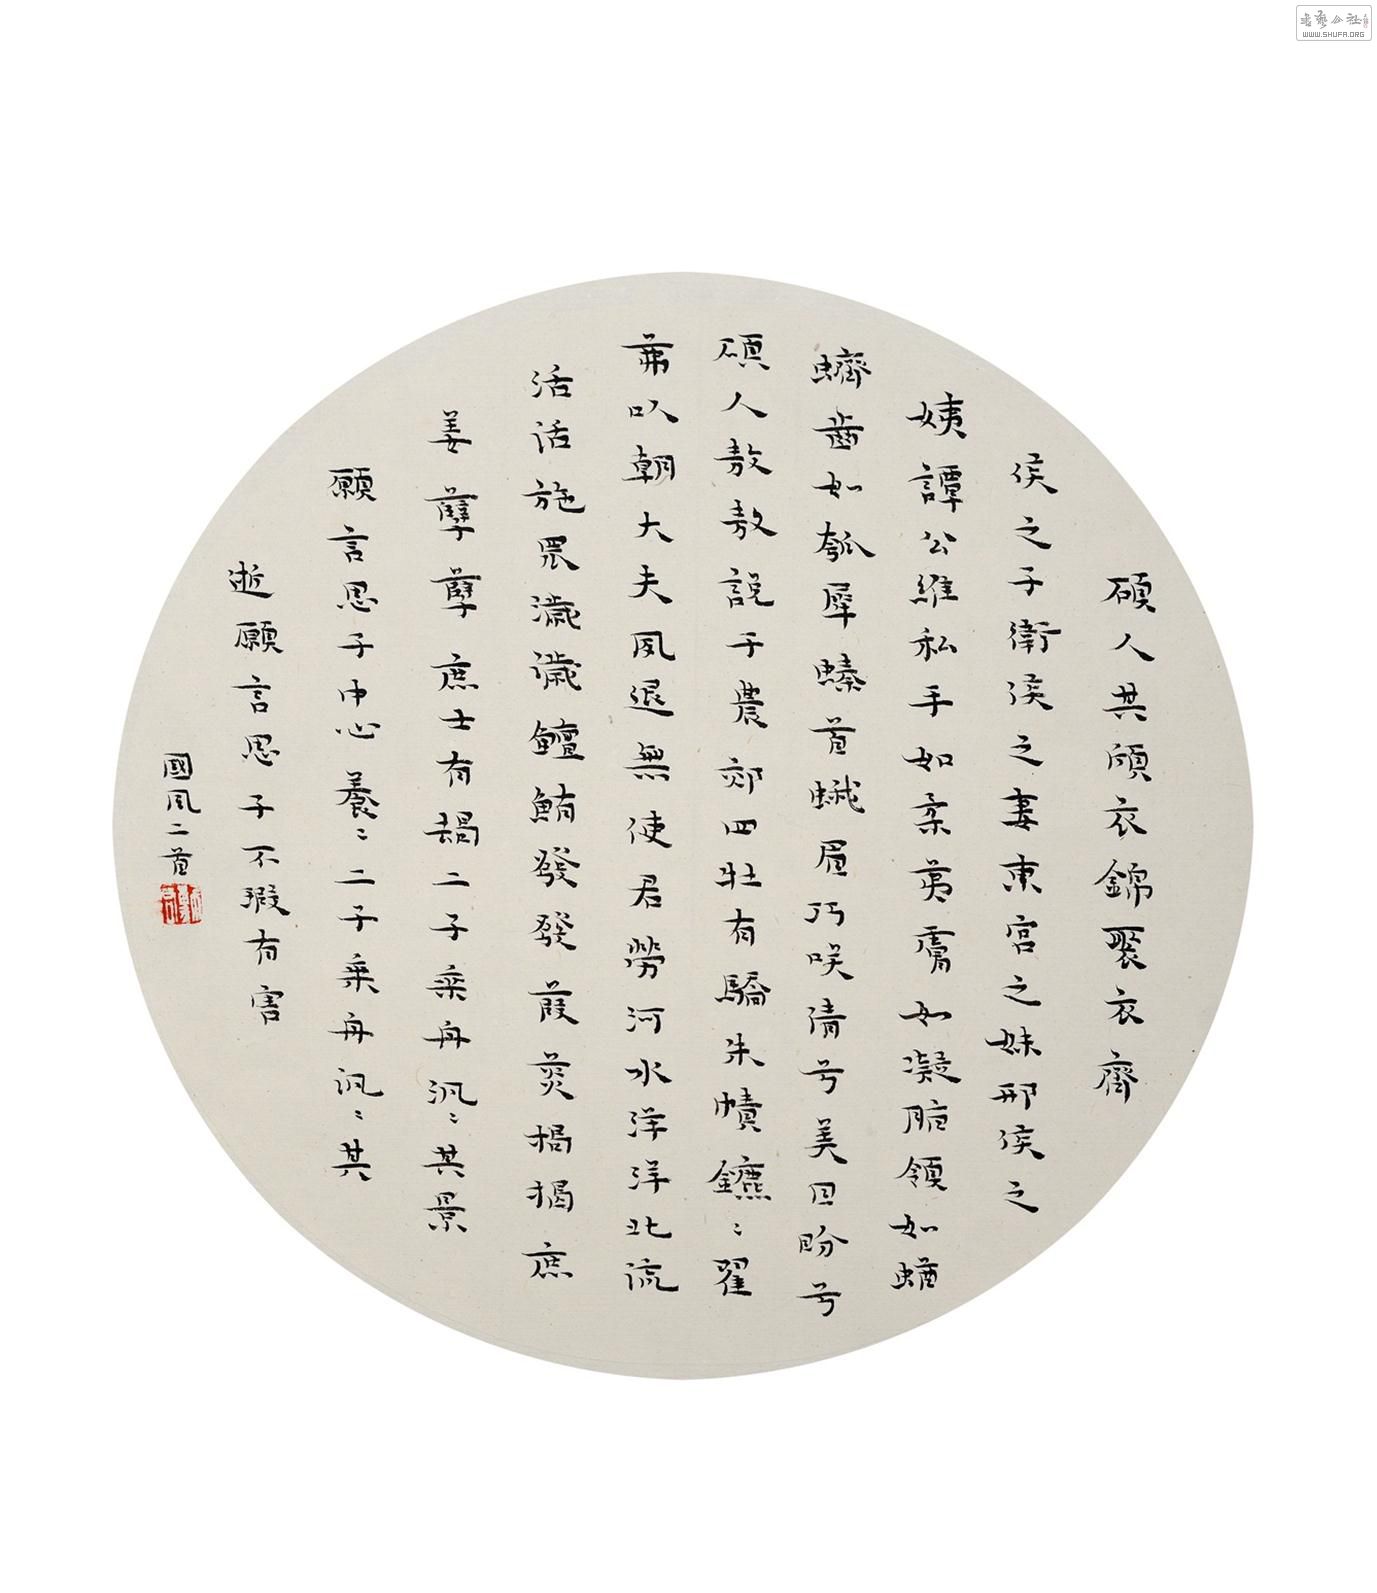 碩人其頎衣錦褧衣齊
侯之子衛侯之妻東宮之妹邢侯之
姨譚公維私手如柔荑膚如凝脂領如蝤
蠐齒如瓠犀螓首蛾眉巧咲倩兮美目盼兮
碩人敖敖說于農郊四牡有驕朱幩鑣〻翟
茀以朝大夫夙退無使君勞河水洋洋北流
活活施罛濊濊鱣鮪發發葭菼揭揭庶
姜孽孽庶士有朅二子乘舟汎〻其景
願言思子中心養〻二子乘舟汎〻其
逝願言思子不瑕有害
國風二首
書藝公社
WWW.SHUFA.ORG